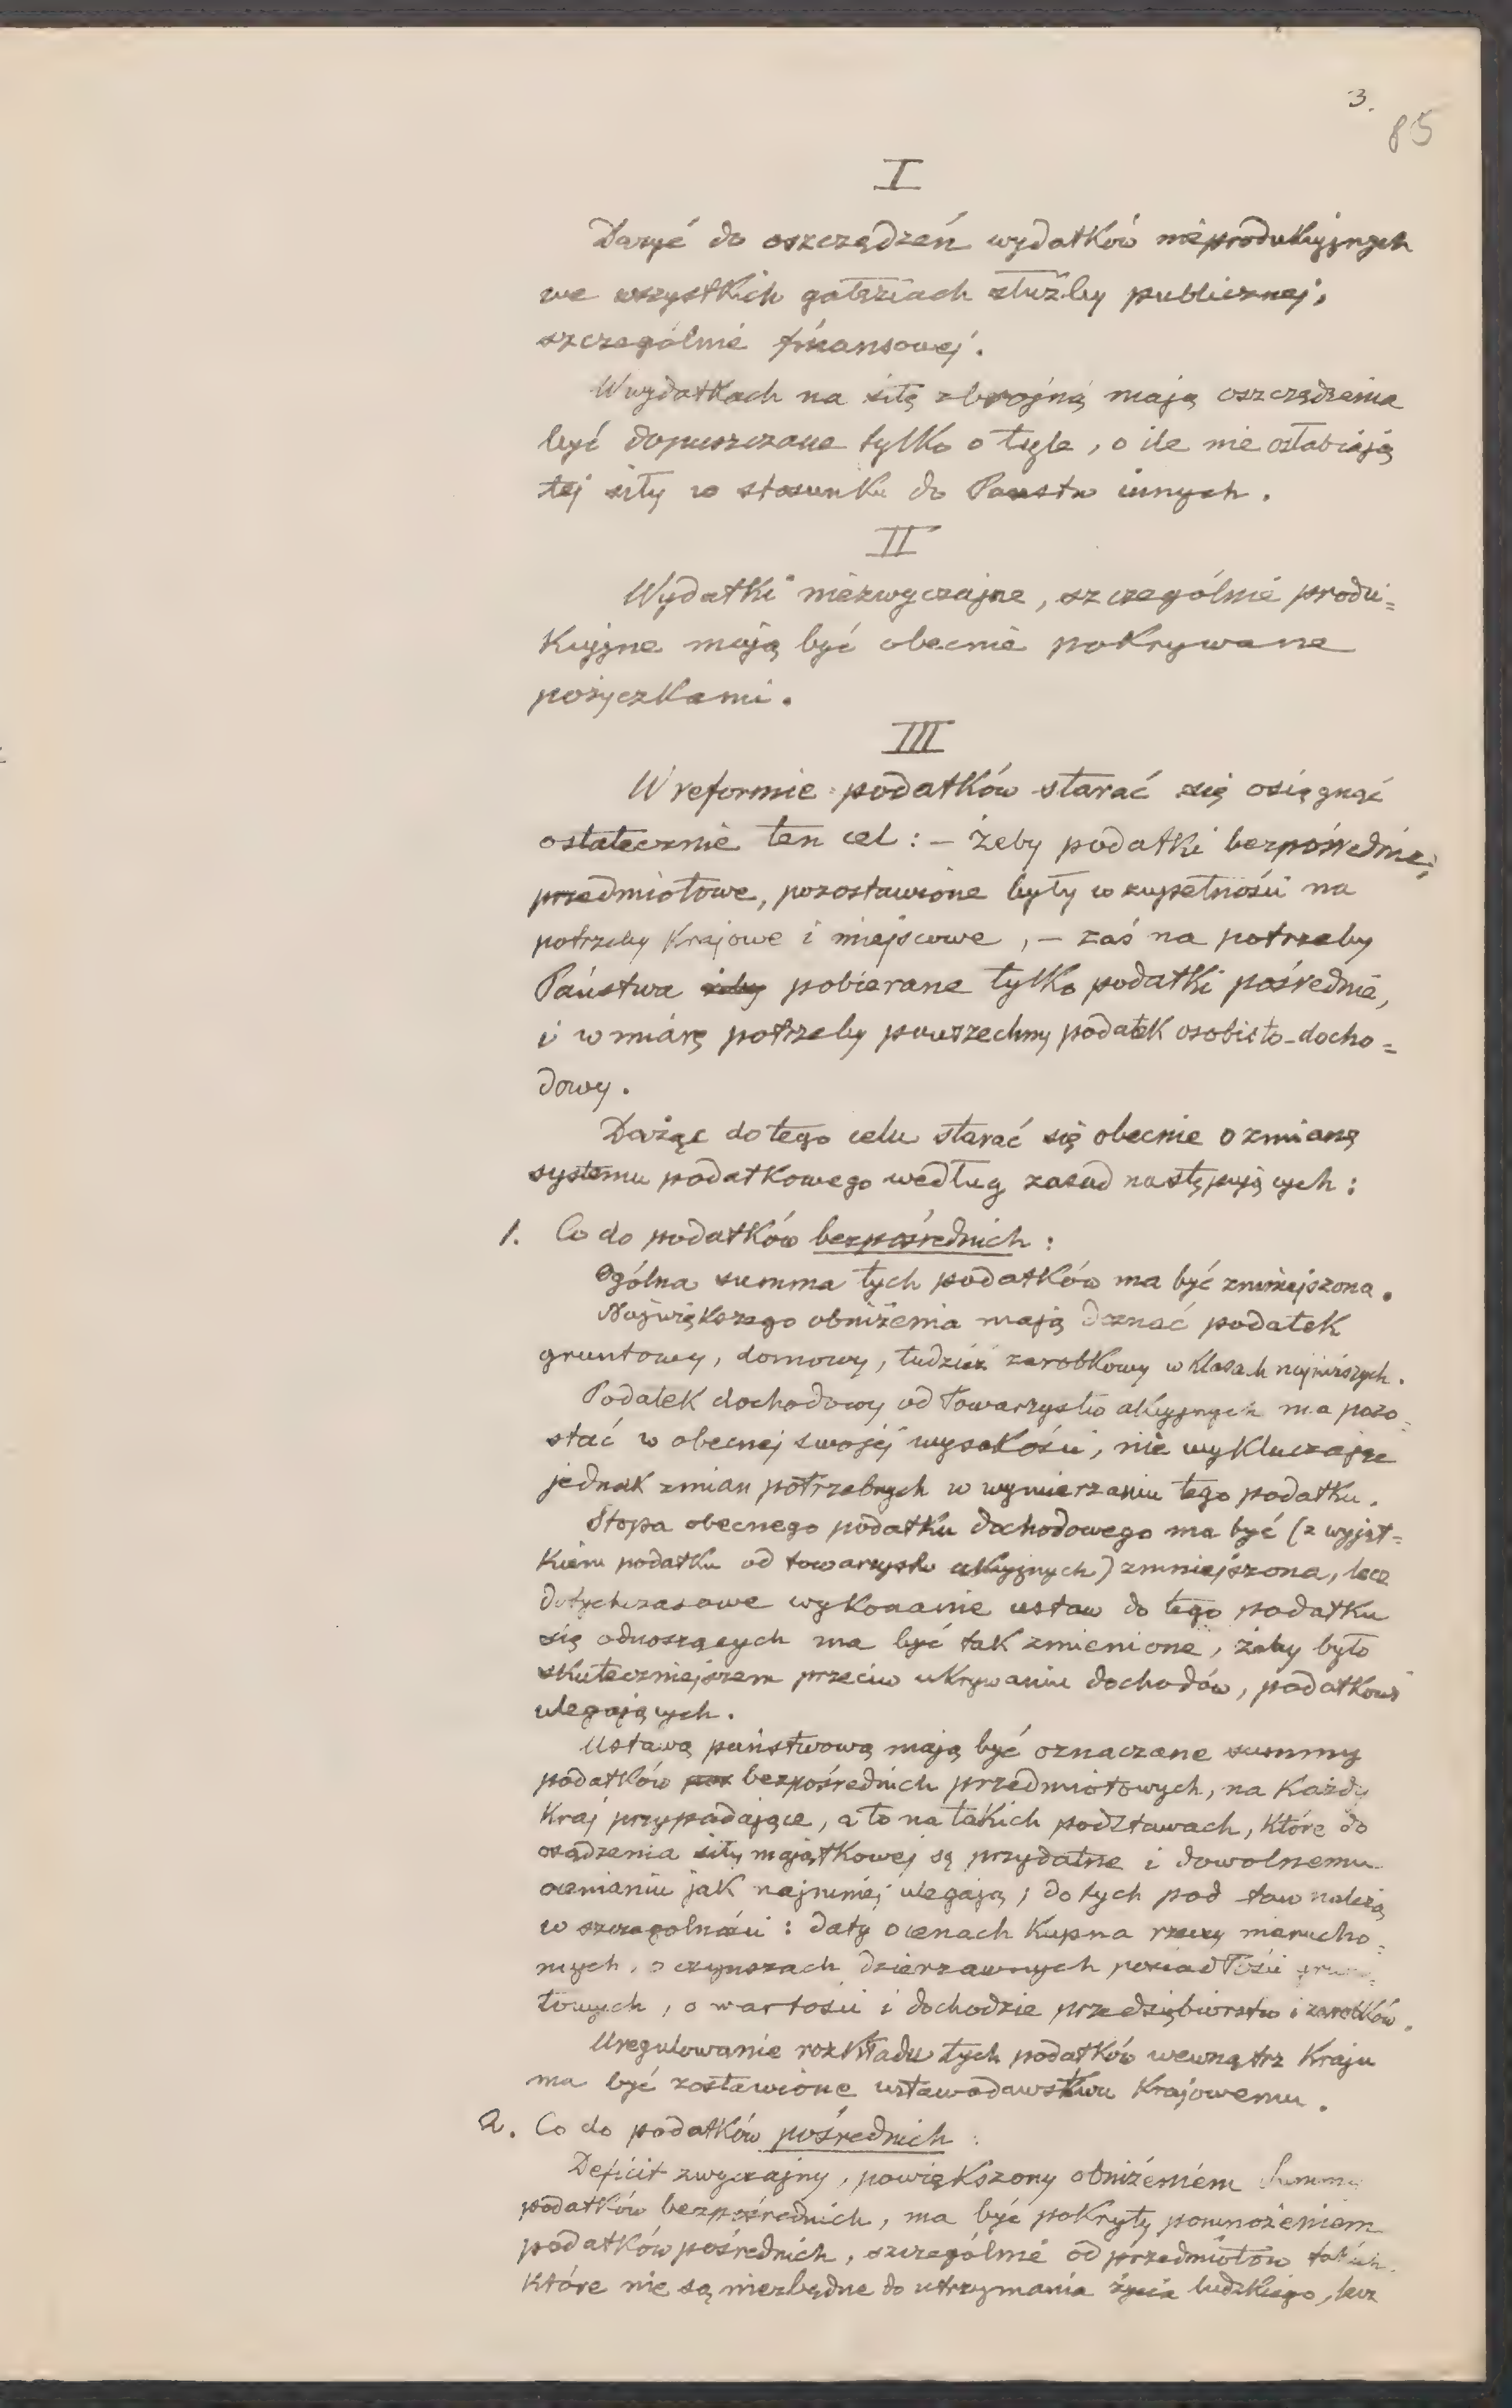 3.
85
I
Dążyć do oszczędzeń wydatków nieprodukcyjnych
we wszystkich gałęziach służby publicznej,
szczególnie finansowej.
W wydatkach na siłę zbrojną mają oszczędzenia
być dopuszczane tylko o tyle, o ile nie osłabiają
tej siły w stosunku do Państw innych.
II
Wydatki niezwyczajne, szczególnie produ=
kcyjne mają być obecnie pokrywane
pożyczkami.
III
W reformie podatków starać się osiągnąć
ostatecznie ten cel: – żeby podatki bezpośrednie,
przedmiotowe, pozostawione były w zupełności na
potrzeby Krajowe i miejscowe, – zaś na potrzeby
Państwa żeby pobierane tylko podatki pośrednie,
i w miarę potrzeby powszechny podatek osobisto-docho=
dowy.
Dążąc do tego celu starać się obecnie o zmianę
systemu podatkowego według zasad następujących:
1. Co do podatków bezpośrednich:
Ogólna summa tych podatków ma być zmniejszona.
Największego obniżenia mają doznać podatek
gruntowy, domowy, tudzież zarobkowy w klasach najniższych.
Podatek dochodowy od towarzystw akcyjnych ma pozo=
stać w obecnej swojej wysokości, nie wykluczając
jednak zmian potrzebnych w wymierzaniu tego podatku.
Stopa obecnego podatku dochodowego ma być (z wyjąt=
kiem podatku od towarzystw akcyjnych) zmniejszona, lecz
dotychczasowe wykonanie ustaw do tego podatku
się odnoszących ma być tak zmienione, żeby było
skuteczniejszem przeciw ukrywaniu dochodów, podatkowi
ulegających.
Ustawą państwową mają być oznaczane summy
podatków pos bezpośrednich przedmiotowych, na Każdy
Kraj przypadające, a to na takich podstawach, które do
osądzenia siły majątkowej są przydatne i dowolnemu
ocenianiu jak najmniej ulegają; do tych pod taw należą
w szczególności: daty o cenach kupna rzeczy nierucho=
mych, o czynszach dzierżawnych posiadłości grun=
towych, o wartości i dochodzie przedsiębiorstw i zarobków.
Uregulowanie rozkładu tych podatków wewnątrz Kraju
ma być zostawione ustawodawstwu Krajowemu.
2. Co do podatków pośrednich:
Deficit zwyczajny, powiększony obniżeniem Summy
podatków bezpośrednich, ma być pokryty pomnożeniem
podatków pośrednich, szczególnie od przedmiotów takich,
które nie są niezbędne do utrzymania życia ludzkiego, lecz